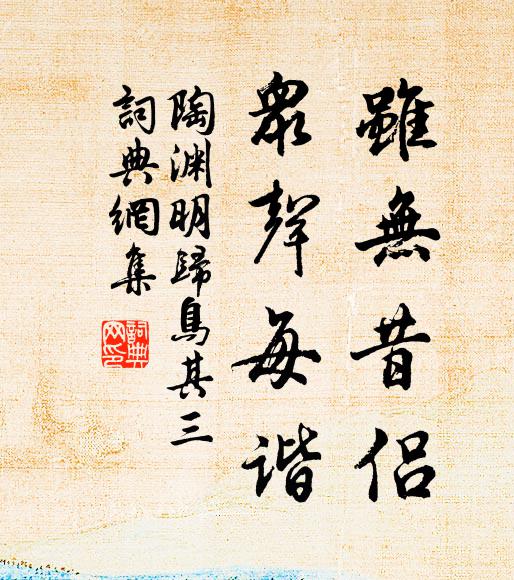 雖無昔侶
眾聲每谐
陶渊明歸鳥其三
詞典網集
詞典網印